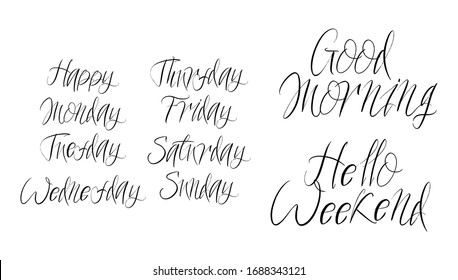 Happy
Monday
Tuesday
Wednesday
Thursday
Friday
Saturday
Sunday
Good
Morning
Hello
Weekend
shutterstock.com · 1688343121